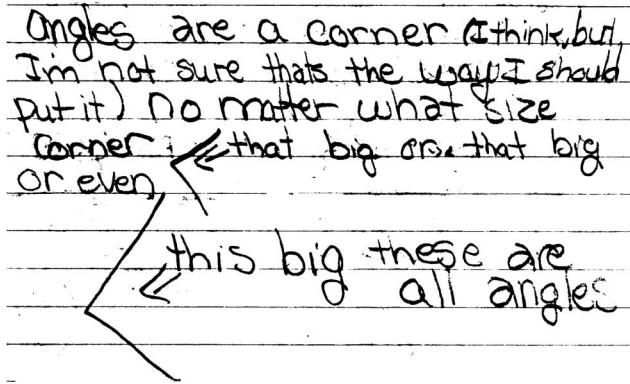 angles are a corner (I think, but
I'm not sure thats the way I should
put it) no matter what size
corner that big or that big
or even
this big these are
all angles